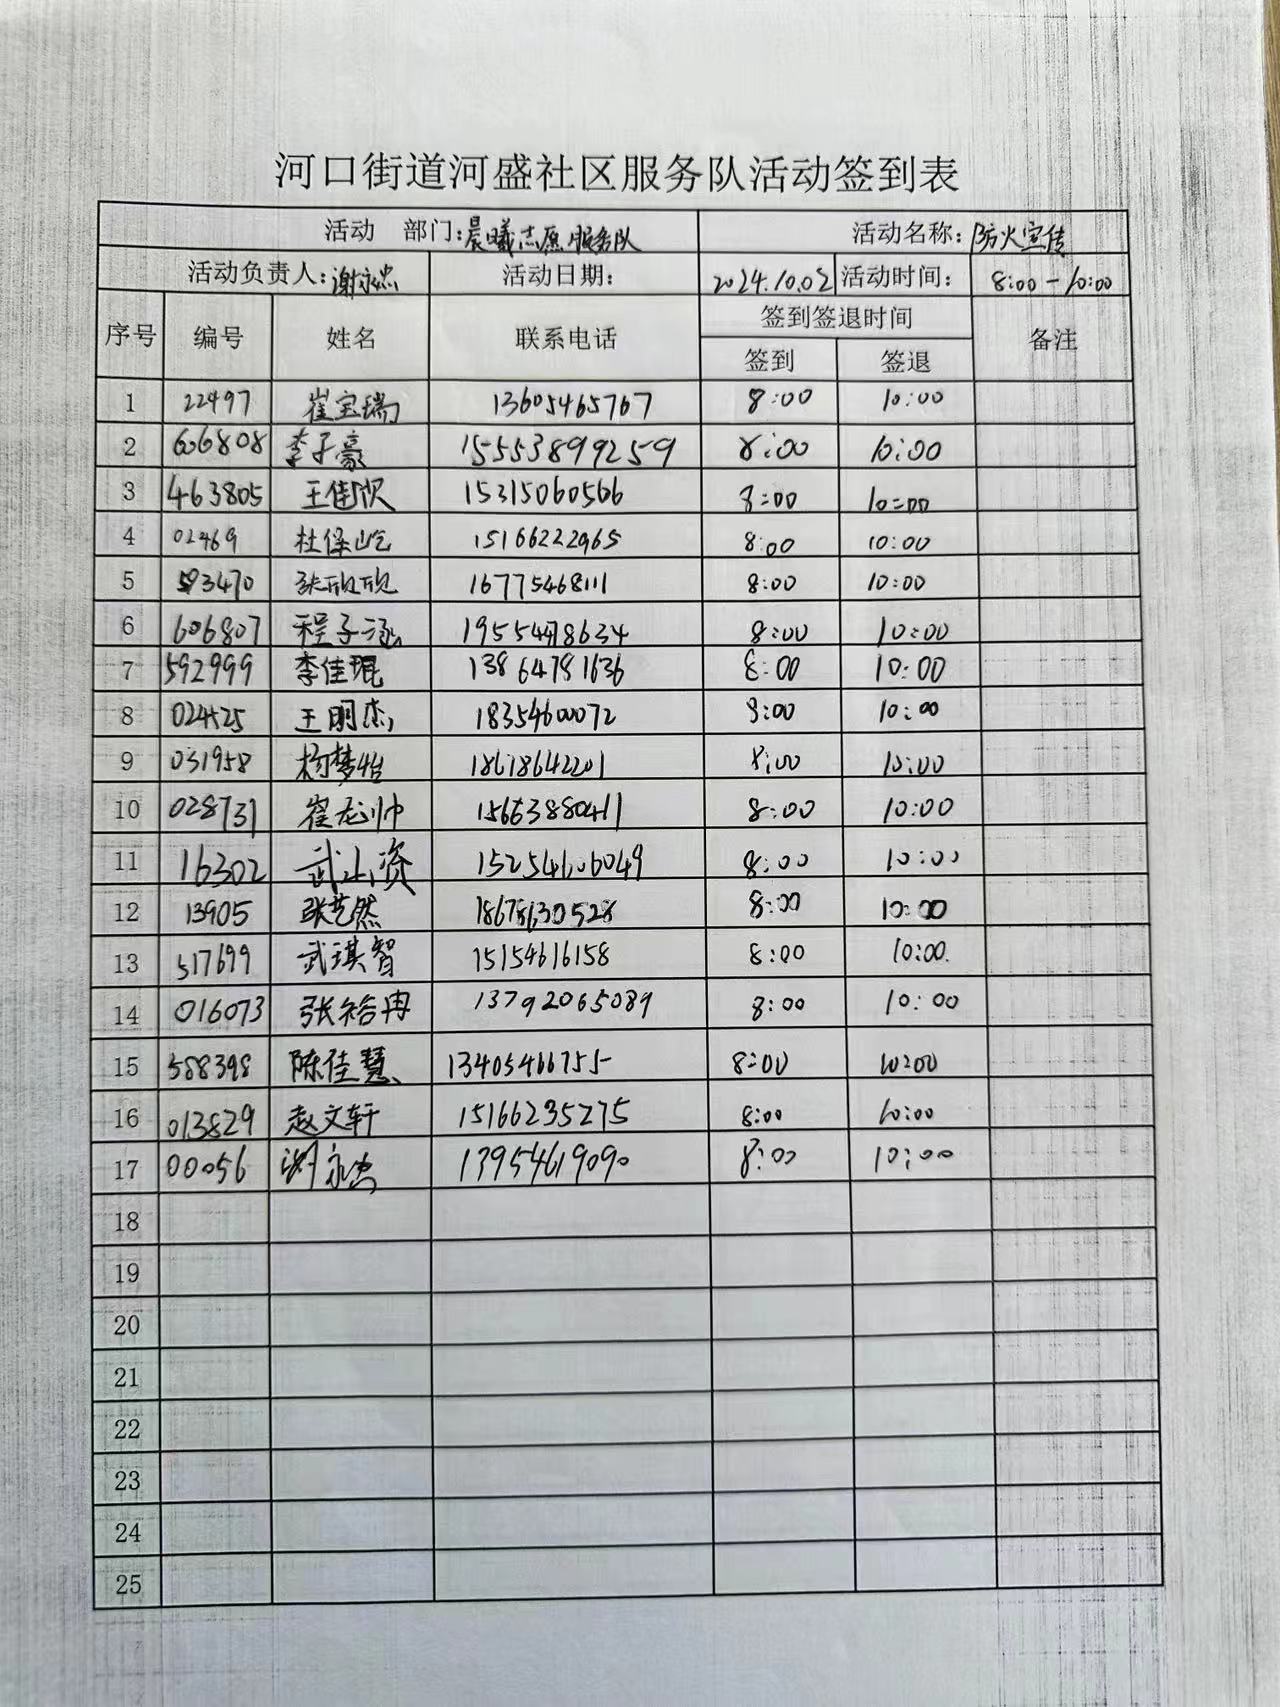 河口街道河盛社区服务队活动签到表
活动 部门:晨曦志愿服务队 活动名称:防火宣传
活动负责人:谢永忠 活动日期: 2024.10.02 活动时间: 8:00-10:00
序号 编号 姓名 联系电话 签到签退时间 备注
签到 签退
1 22497 崔宝瑞 13605465767 8:00 10:00
2 606808 李子豪 15553899259 8:00 10:00
3 463805 王佳欣 15315060566 8:00 10:00
4 02469 杜保屹 15166222965 8:00 10:00
5 593470 张欣欣 16775468111 8:00 10:00
6 606807 程子涵 8:00 10:00
7 592999 李佳琨 13864781636 8:00 10:00
8 王明杰 18354600072 8:00 10:00
9 031958 杨梦怡 18618642201 8:00 10:00
10 028731 崔龙帅 15663880411 8:00 10:00
11 16302 武 15254606049 8:00 10:00
12 13905 张艺然 8:00 10:00
13 517699 武琪智 15154616158 8:00 10:00
14 016073 张裕冉 13792065089 8:00 10:00
15 588398 陈佳慧 13405466755 8:00 10:00
16 013829 赵文轩 15166235275 8:00 10:00
17 00056 谢永忠 13954619090 8:00 10:00
18
19
20
21
22
23
24
25